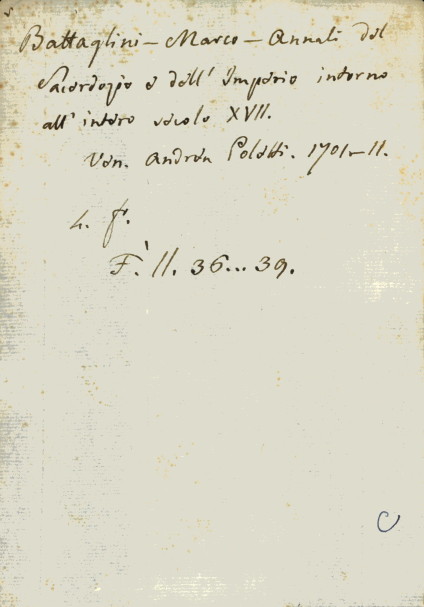 Battaglini - Marco - Annali del
Sacerdozio e dell' Imperio intorno
all' intero secolo XVII.
Ven. Andrea Poletti. 1701-11.
4. f.
F. II. 36... 39.
C